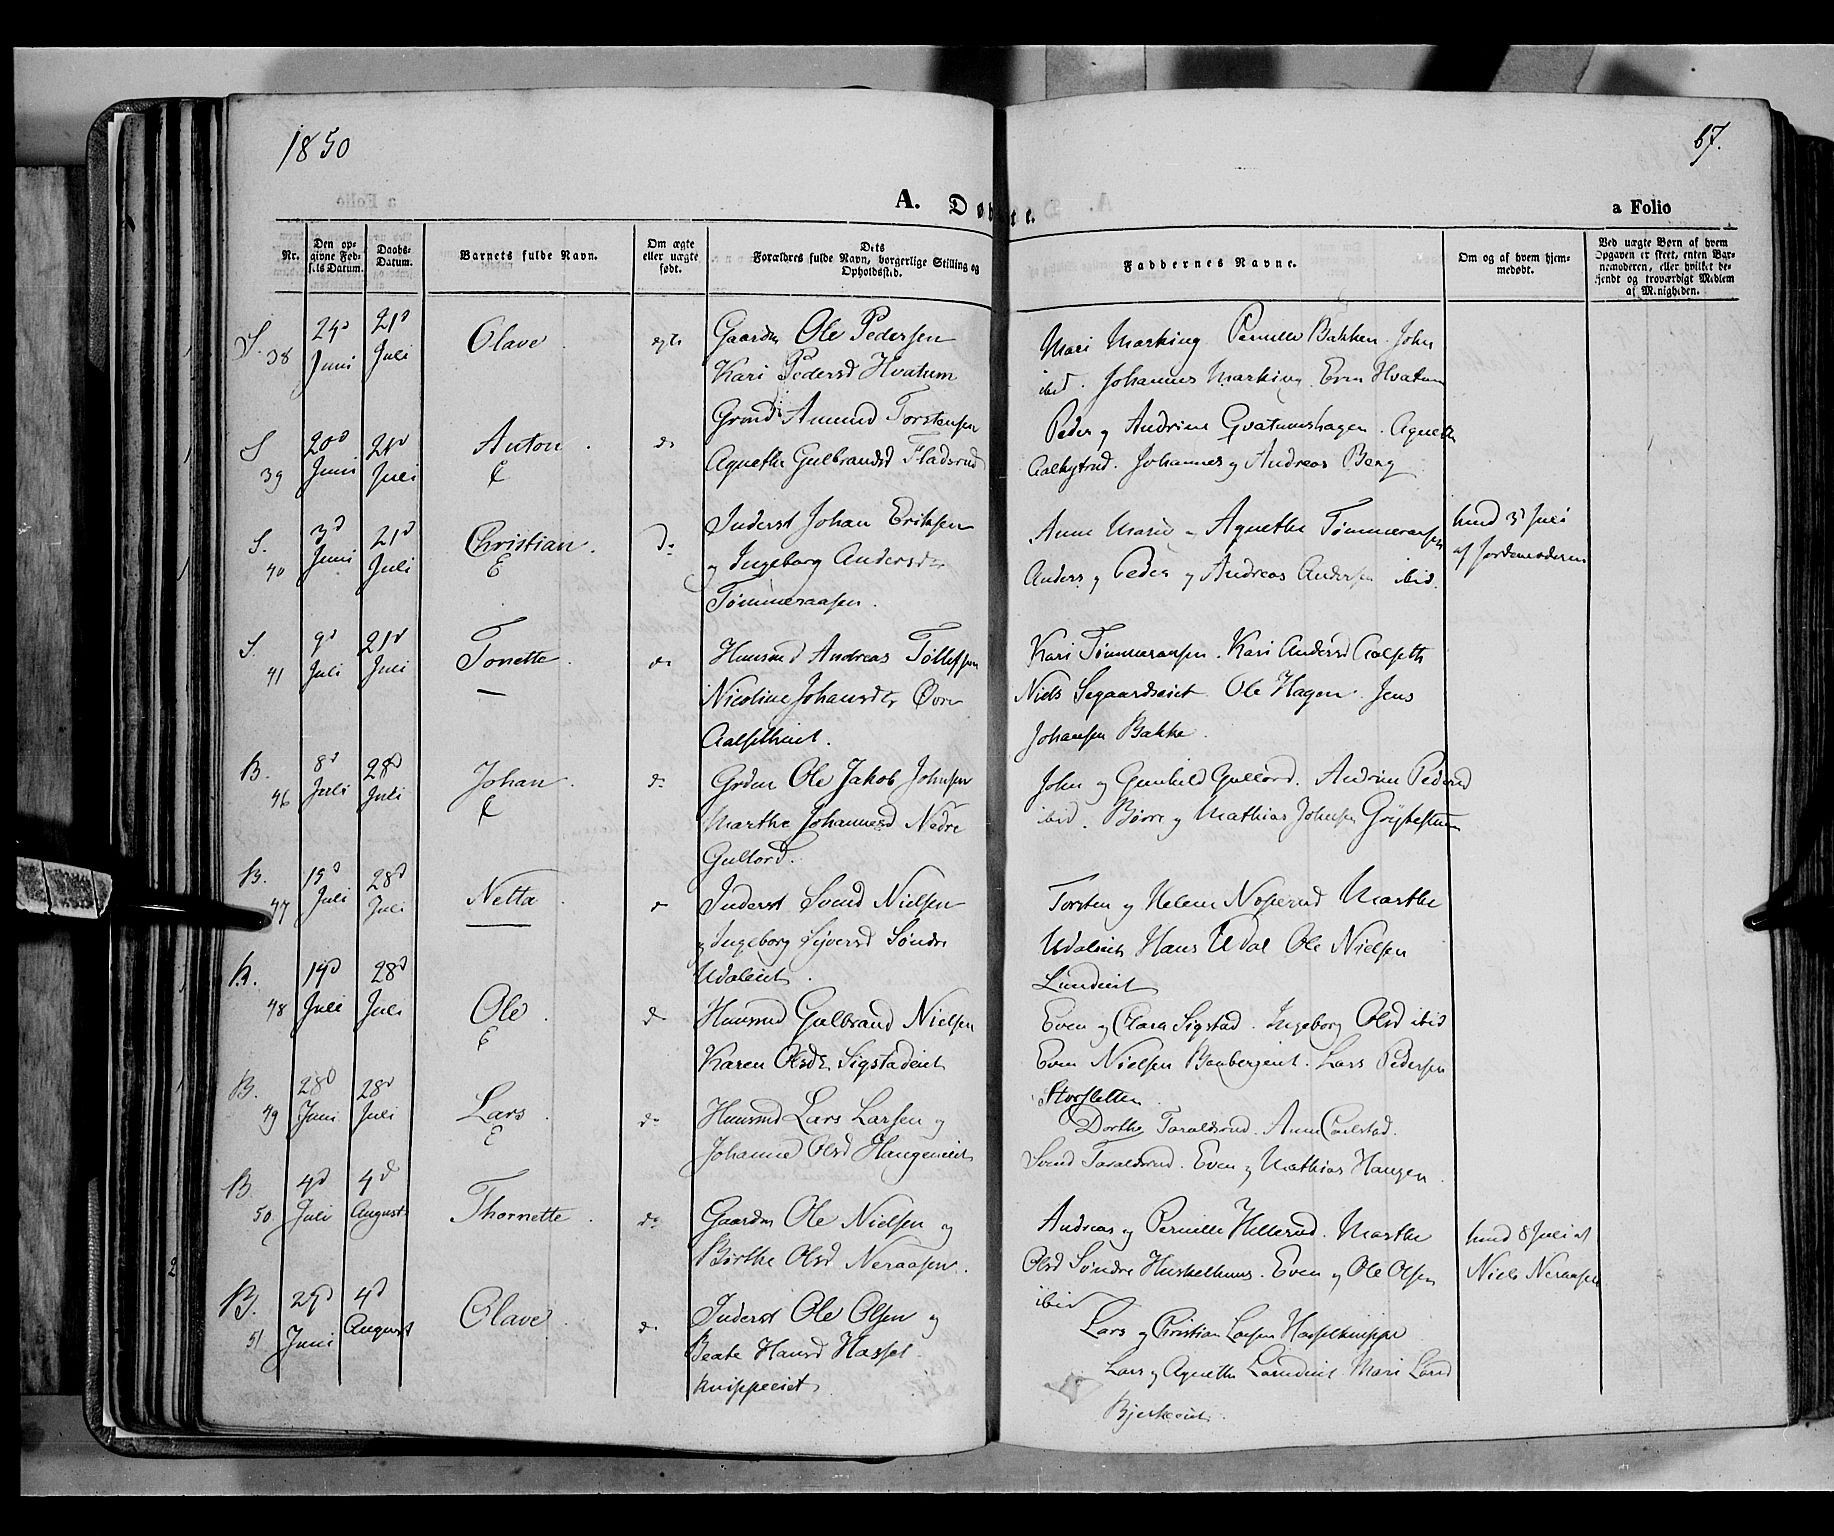 1850
67.
A. Døbte.
a Folio
Nr.
Den opgivne Fødsels Datum.
Daabs-Datum.
Barnets fulde Navn.
Om ægte eller uægte født.
Dets Forældres fulde Navn, borgerlige Stilling og Opholdssted.
Faddernes Navne.
Om og af hvem hjemmedøbt.
Ved uægte Børn af hvem Opgaven er skeet, enten Barnemoderen, eller hvilket bekjendt og troværdigt Medlem af Menigheden.
S. 38
24d Juni
21d Juli
Olave
egte
Gaardm Ole Pedersen
Kari Pedersd Hvatum
Mari Marking Pernille Bakken. John
ibid. Johannes Marking. Even Hvatum
S 39
20d Juni
21d Juli
Anton
do
Grmd Amund Torstensen
Agnethe Gulbrandsd Fladsrud
Peder og Andrine Gvatumshagen. Agnethe
Johannes og Andreas Berg
S. 40
3d Juni
21d Juli
Christian.
do
Inderst Johan Eriksen
og Ingeborg Andersdr
Tømmeraasen.
Anne Marie Agnethe Tømmeraasen
Anders og Peder og Andreas Andersen ibid.
hmd 3d Juli
af Jordemoderen
S. 41
9d Juli
21d Juli
Tonette.
do
Huusmd Andreas Tollefsen
Nicoline Johansdr Øvre
Aalsetheiet.
Kari Tømmeraasen. Kari Andersd Aalseth
Niels Segaardseiet Ole Hagen. Jens
Johansen Bakke.
B. 46
8d Juli
28d Juli
Johan.
do
Grdm Ole Jakob Johnsen
Marthe Johannesd Nedre
Gullord.
John og Gunhild Gullord. Andrine Pedersd
ibid. Børre og Mathias Johnsen
B. 47
19d Juli
28d Juli
Netta
Inderst Svend Nielsen
og Ingeborg Sjversd Søndre
Udaleiet.
Torsten og Helene Noserud Marthe
Udaleiet Hans Udal Ole Nielsen
Lundeiet
B. 48
14d Juli
28d Juli
Ole.
do
Huusmd Gulbrand Nielsen
Karen Olsdr Sigstadeiet
Even og Clara Sigstad. Ingeborg Olsd ibid
Even Nielsen Lars Pedersen
Storsletten.
B. 49
28d Juni
28d Juli
Lars.
do
Huusmd Lars Larsen og
Johanne Olsd Haugeneiet
Dorthe Taraldsrud. Anne
Svend Taraldsrud. Even og Mathias Haugen.
B. 50
4d Juli
4d August
Thornette.
do
Gaardm Ole Nielsen og
Børthe Olsd Neraasen.
Andreas og Pernille Hillerud. Marthe
Olsd Søndre Huskelhuus. Even og Ole Olsen
ibid
hmd 8 Juli af
Niels Neraasen
B. 51
Juni
4d August
Olave.
do
Inderst Ole Olsen og
Beate Hansd Hassel
knippeeiet
Lars og Christian Larsen Hasselknippe
Lars og Agnethe Mari
Bjerkeeiet.